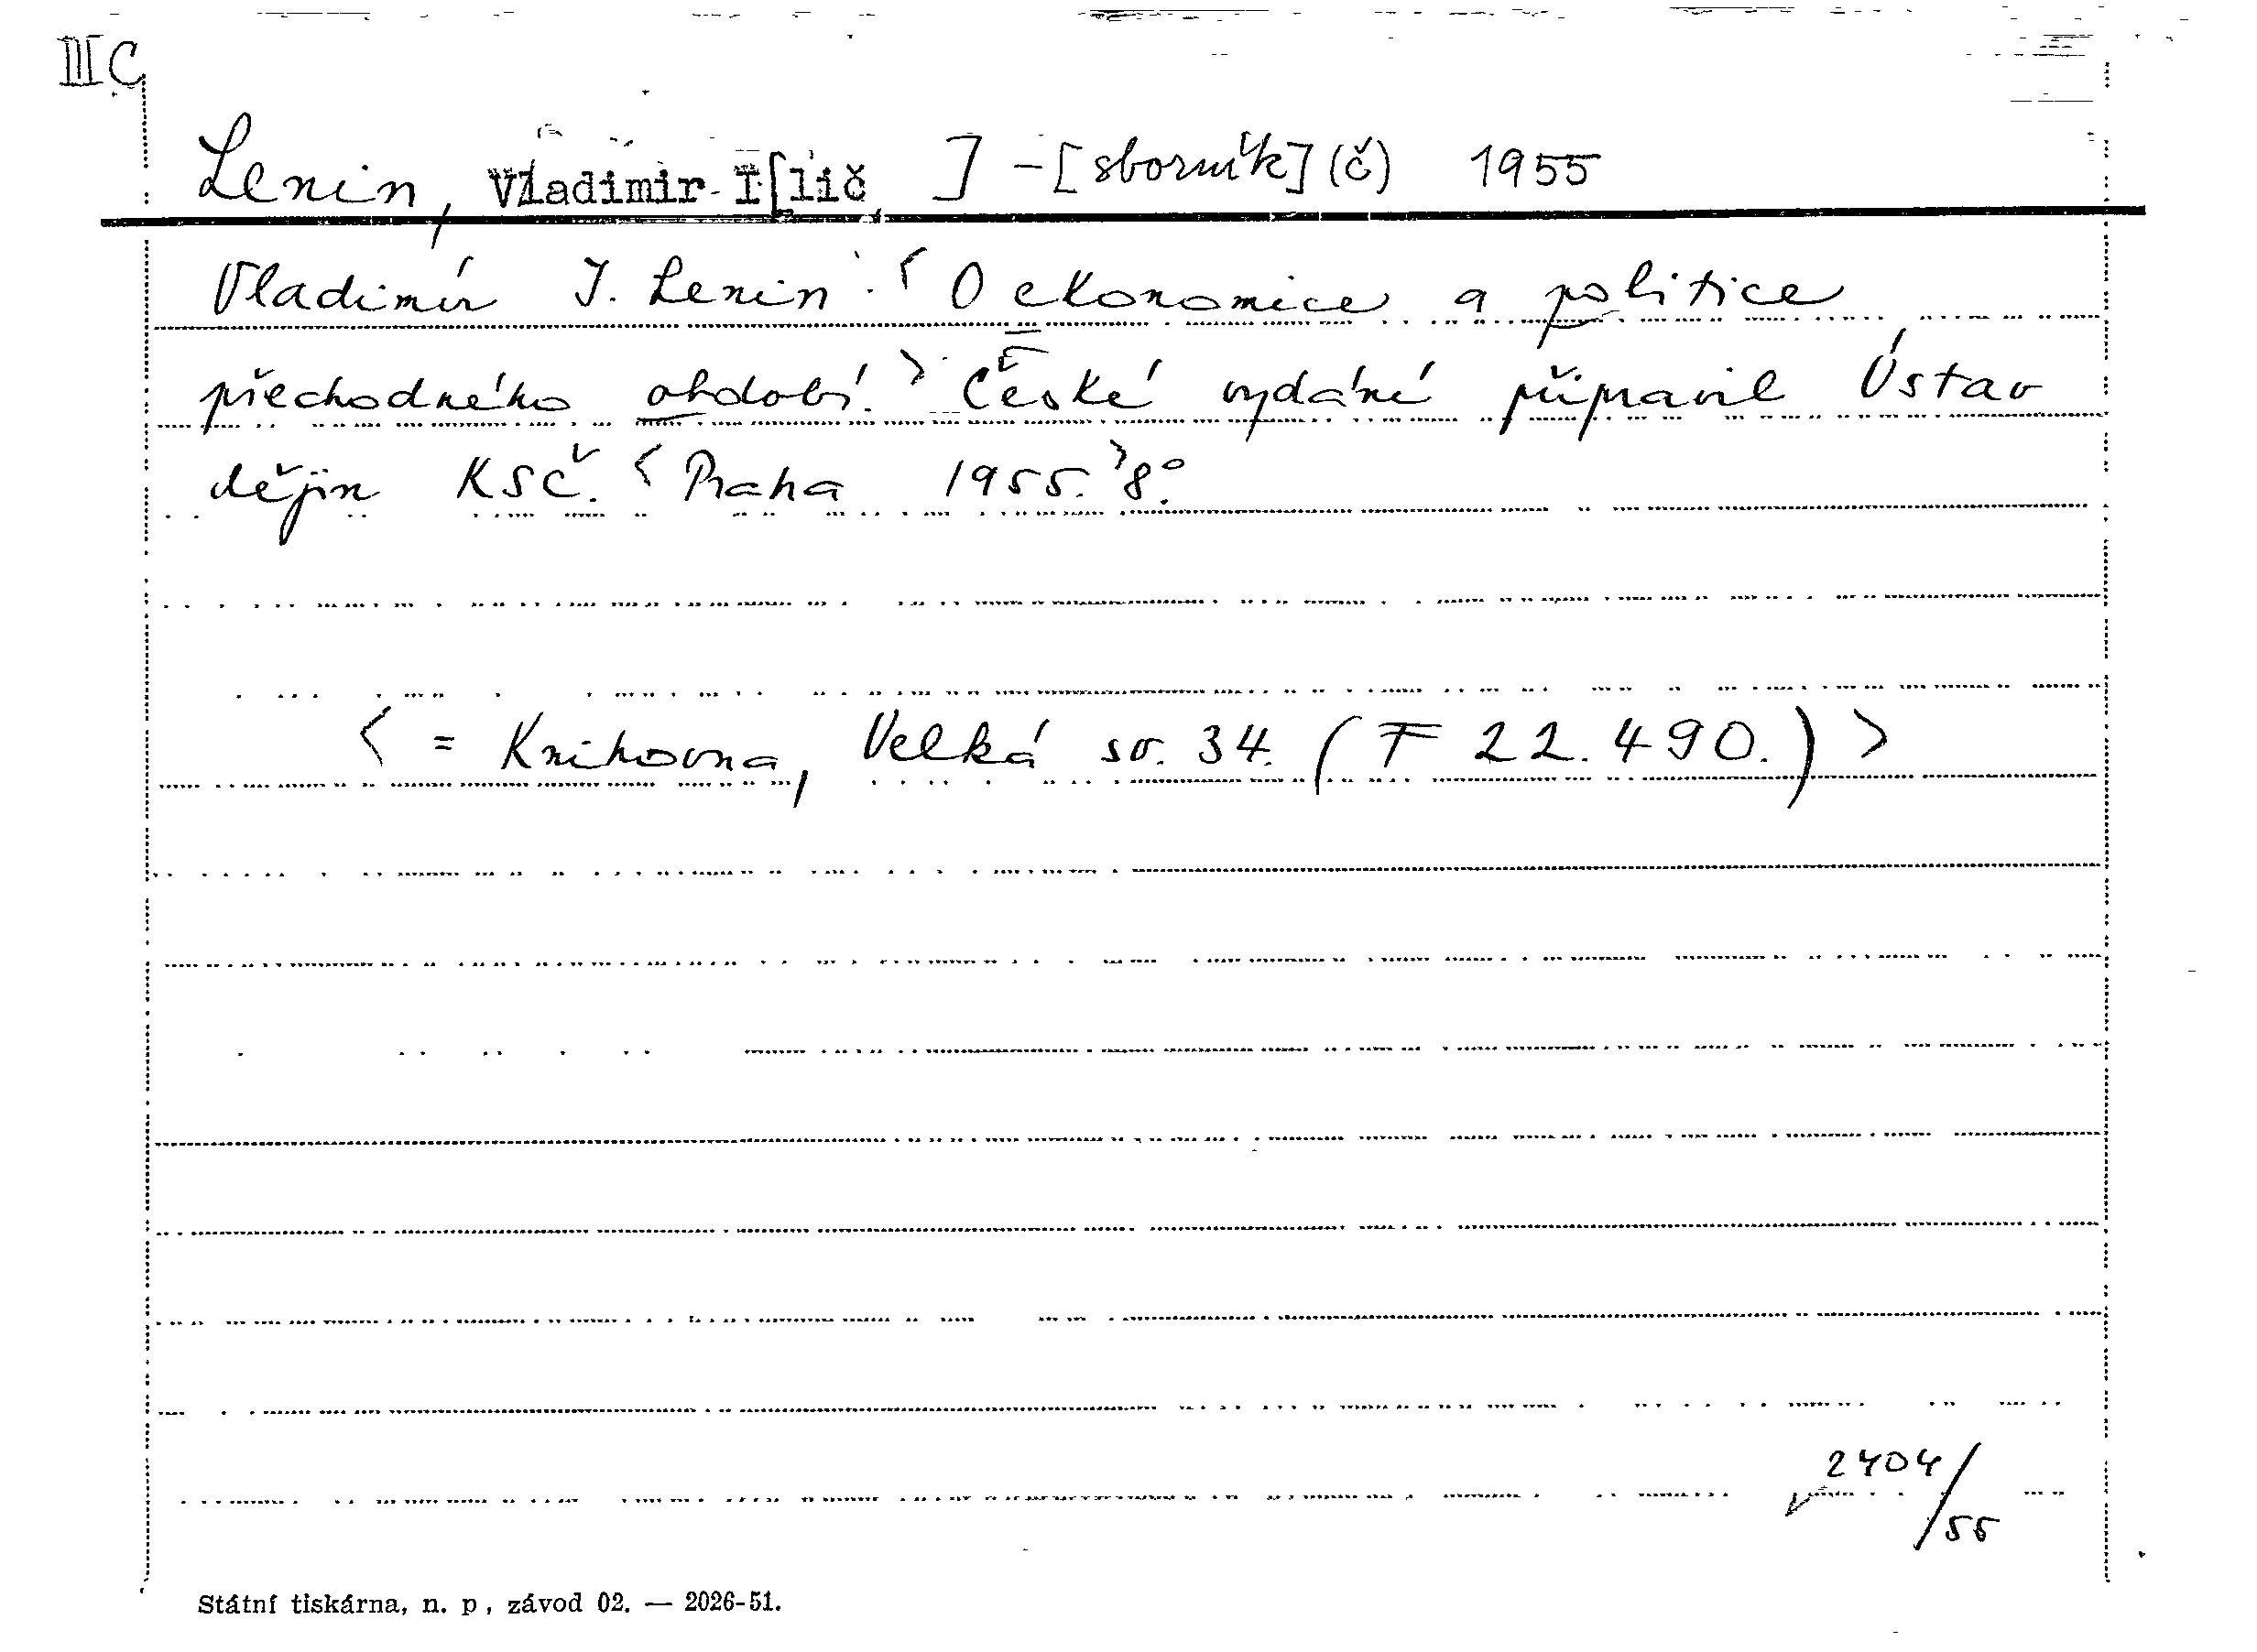 III C
Lenin, Vladimir I[lič] - [sborník] (č) 1955
Vladimír I. Lenin: < O ekonomice a politice
přechodného období. > České vydání připravil Ústav
dějin KSČ. < Praha 1955. > 8°.
< = Knihovna, Velká sv. 34. (F 22.490.) >
2404/55
Státní tiskárna, n. p., závod 02. — 2026-51.